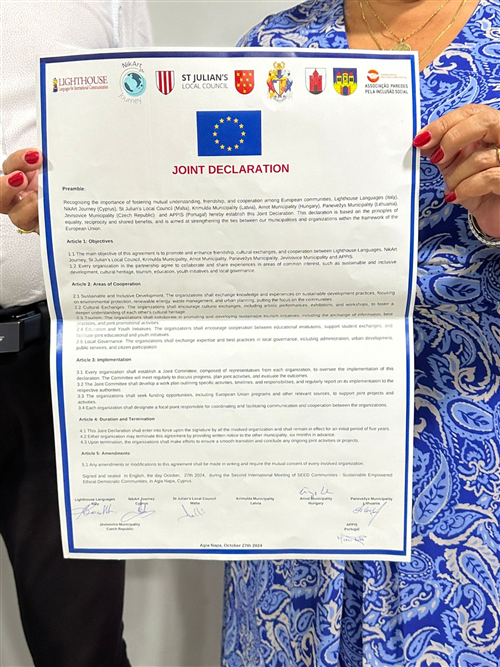 LIGHTHOUSE
Languages for International Communications
NikArt
JOURNEY
ST JULIAN'S
LOCAL COUNCIL
ASSOCIAÇÃO PAREDES
PELA INCLUSÃO SOCIAL
JOINT DECLARATION
Preamble:
Recognising the importance of fostering mutual understanding, friendship, and cooperation among European communities, Lighthouse Languages (Italy),
NikArt Journey (Cyprus), St Julian's Local Council (Malta), Krimulda Municipality (Latvia), Amot Municipality (Hungary), Panevėžys Municipality (Lithuania),
Jevisovice Municipality (Czech Republic) and APPIS (Portugal) hereby establish this Joint Declaration. This declaration is based on the principles of
equality, reciprocity and shared benefits, and is aimed at strengthening the ties between our municipalities and organizations within the framework of the
European Union.
Article 1: Objectives
1.1 The main objective of this agreement is to promote and enhance friendship, cultural exchanges, and cooperation between Lighthouse Languages, NikArt
Journey, St Julian's Local Council, Krimulda Municipality, Amot Municipality, Panevėžys Municipality, Jevisovice Municipality and APPIS.
1.2 Every organization in the partnership agree to collaborate and share experiences in areas of common interest, such as sustainable and inclusive
development, cultural heritage, tourism, education, youth initiatives and local governance.
Article 2: Areas of Cooperation
2.1 Sustainable and Inclusive Development: The organizations shall exchange knowledge and experiences on sustainable development practices, focusing
on environmental protection, renewable energy, waste management, and urban planning, putting the focus on the communities
2.2 Cultural Exchanges: The organizations shall encourage cultural exchanges, including artistic performances, exhibitions, and workshops, to foster a
deeper understanding of each other's cultural heritage
2.3 Tourism: The organizations shall collaborate in promoting and developing sustainable tourism initiatives, including the exchange of information, best
practices, and joint promotional activities
2.4 Education and Youth Initiatives: The organizations shall encourage cooperation between educational institutions, support student exchanges, and
facilitate joint educational and youth initiatives
2.5 Local Governance: The organizations shall exchange expertise and best practices in local governance, including administration, urban development,
public services, and citizen participation
Article 3: Implementation
3.1 Every organization shall establish a Joint Committee, composed of representatives from each organization, to oversee the implementation of this
declaration. The Committee will meet regularly to discuss progress, plan joint activities, and evaluate the outcomes.
3.2 The Joint Committee shall develop a work plan outlining specific activities, timelines, and responsibilities, and regularly report on its implementation to the
respective authorities.
3.3 The organizations shall seek funding opportunities, including European Union programs and other relevant sources, to support joint projects and
activities.
3.4 Each organization shall designate a focal point responsible for coordinating and facilitating communication and cooperation between the organizations.
Article 4: Duration and Termination
4.1 This Joint Declaration shall enter into force upon the signature by all the involved organization and shall remain in effect for an initial period of five years.
4.2 Either organization may terminate this agreement by providing written notice to the other municipality, six months in advance.
4.3 Upon termination, the organizations shall make efforts to ensure a smooth transition and conclude any ongoing joint activities or projects.
Article 5: Amendments
5.1 Any amendments or modifications to this agreement shall be made in writing and require the mutual consent of every involved organization.
Signed and sealed in English, the day October, 27th 2024, during the Second International Meeting of SEED Communities - Sustainable Empowered
Ethical Democratic Communities, in Agia Napa, Cyprus.
Lighthouse Languages NikArt Journey St Julian's Local Council Krimulda Municipality Amot Municipality Panevėžys Municipality
Italy Cyprus Malta Latvia Hungary Lithuania
Jevisovice Municipality APPIS
Czech Republic Portugal
Agia Napa, October 27th 2024